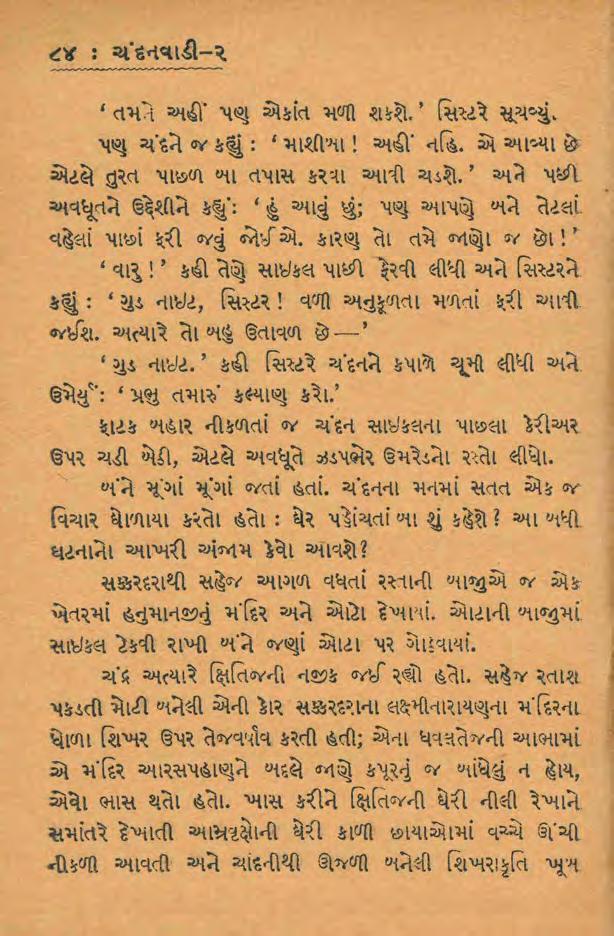 ૮૪ : ચંદનવાડી–૨
‘ તમને અહીં પણ એકાંત મળી શકશે.’ સિસ્ટરે સૂચવ્યું.
પણ ચંદને જ કહ્યું : ‘ માશીબા ! અહીં નહિ. એ આવ્યા છે
એટલે તુરત પાછળ બા તપાસ કરવા આવી ચડશે.’ અને પછી
અવધૂતને ઉદ્દેશીને કહ્યું : ‘ હું આવું છું; પણ આપણે બને તેટલાં
વહેલાં પાછાં ફરી જવું જોઈએ. કારણ તો તમે જાણો જ છો !’
‘ વારુ !’ કહી તેણે સાઇકલ પાછી ફેરવી લીધી અને સિસ્ટરને
કહ્યું : ‘ ગુડ નાઇટ, સિસ્ટર ! વળી અનુકૂળતા મળતાં ફરી આવી
જઈશ. અત્યારે તો બહુ ઉતાવળ છે —’
‘ ગુડ નાઇટ.’ કહી સિસ્ટરે ચંદનને કપાળે ચૂમી લીધી અને
ઉમેર્યું : ‘ પ્રભુ તમારું કલ્યાણ કરો.’
ફાટક બહાર નીકળતાં જ ચંદન સાઇકલના પાછલા કેરીઅર
ઉપર ચડી બેઠી, એટલે અવધૂતે ઝડપભેર ઉમરેડનો રસ્તો લીધો.
બંને મૂંગાં મૂંગાં જતાં હતાં. ચંદનના મનમાં સતત એક જ
વિચાર ઘોળાયા કરતો હતો : ઘેર પહોંચતાં બા શું કહેશે ? આ બધી
ઘટનાનો આખરી અંજામ કેવો આવશે ?
સક્કરદરાથી સહેજ આગળ વધતાં રસ્તાની બાજુએ જ એક
ખેતરમાં હનુમાનજીનું મંદિર અને ઓટો દેખાયાં. ઓટાની બાજુમાં
સાઇકલ ટેકવી રાખી બંને જણાં ઓટા પર ગોઠવાયાં.
ચંદ્ર અત્યારે ક્ષિતિજની નજીક જઈ રહ્યો હતો. સહેજ રતાશ
પકડતી મોટી બનેલી એની કોર સક્કરદરાના લક્ષ્મીનારાયણના મંદિરના
ધોળા શિખર ઉપર તેજવર્ષાવ કરતી હતી; એના ધવલતેજની આભામાં
એ મંદિર આરસપહાણને બદલે જાણે કપૂરનું જ બાંધેલું ન હોય,
એવો ભાસ થતો હતો. ખાસ કરીને ક્ષિતિજની ઘેરી નીલી રેખાને
સમાંતરે દેખાતી આમ્રવૃક્ષોની ઘેરી કાળી છાયાઓમાં વચ્ચે ઊંચી
નીકળી આવતી અને ચાંદનીથી ઊજળી બનેલી શિખરાકૃતિ ખૂબ